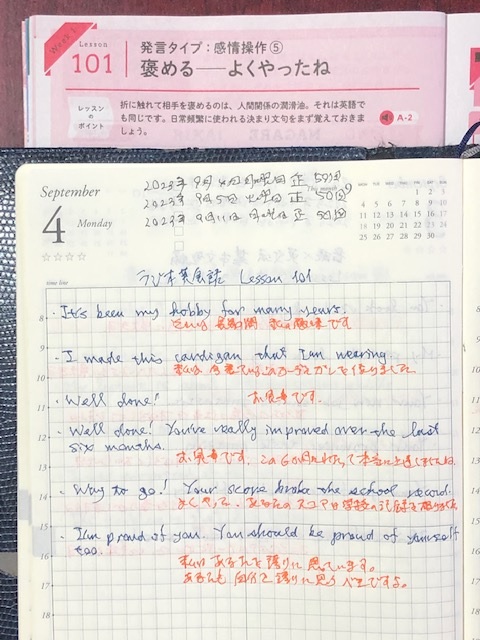 Week 1
Lesson
101
発言タイプ：感情操作⑤
褒める──よくやったね
レッスン
の
ポイント
折に触れて相手を褒めるのは、人間関係の潤滑油。それは英語で
も同じです。日常頻繁に使われる決まり文句をまず覚えておきま
しょう。
A-2
September
4 Monday
☆☆☆☆
This month
MON TUE WED THU FRI SAT SUN
1 2 3
4 5 6 7 8 9 10
11 12 13 14 15 16 17
18 19 20 21 22 23 24
25 26 27 28 29 30
2023年 9月4日月曜日 正 50回
2023年 9月5日 火曜日 正 50回
2023年 9月11日 月曜日 正 50回
ラジオ英会話 Lesson 101
time line
8
・It's been my hobby for many years.
長期間 私の趣味です
9
10
・I made this cardigan that I'm wearing.
私は今着ているこのカーディガンを作りました
11
・Well done! お見事です。
12
・Well done! You've really improved over the last
six months.
13
お見事です。この6か月にわたって本当に上達しましたね
14
・Way to go! Your score broke the school record.
よくやった。あなたのスコアは学校の記録を破りました
15
・I'm proud of you. You should be proud of yourself
too.
16
私はあなたを誇りに思っています。
17
あなたも自分を誇りに思うべきですよ。
18